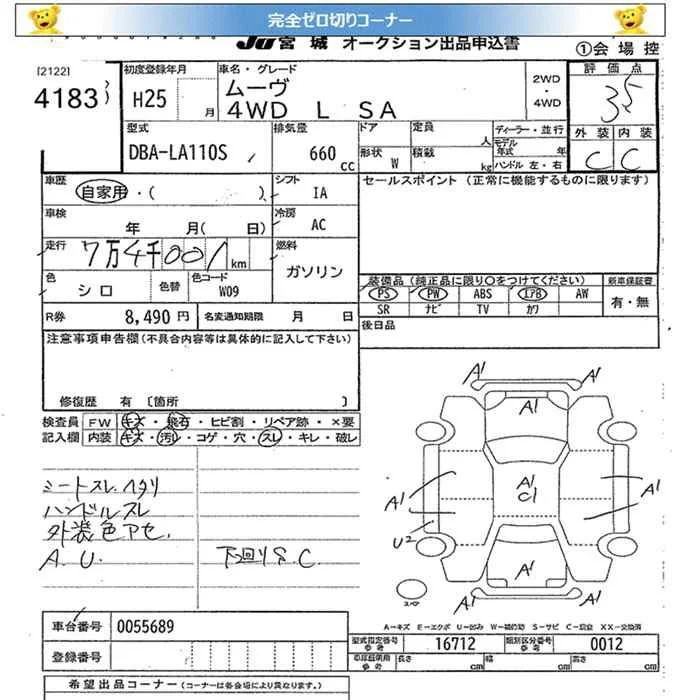 完全ゼロ切りコーナー
JU 宮 城 オークション出品申込書
①会 場 控
[2122]
4183
初度登録年月
H25
月
車名・グレード
ムーヴ
4WD L SA
2WD
・
4WD
評 価 点
3.5
外 装
内 装
C
C
型式
DBA-LA110S
排気量
660 cc
ドア
定員
人
形状
W
積載
kg
ディーラー・並行
モデル年式
年
ハンドル 左・右
車歴
自家用・(
)
シフト
IA
セールスポイント (正常に機能するものに限ります)
車検
年 月( 日)
冷房
AC
走行
7万4千001km
燃料
ガソリン
色
シロ
色替
色コード
W09
装備品 (純正品に限り○をつけてください)
新車保証書
PS PW ABS エアB AW
SR ナビ TV カワ
有・無
R券
8,490 円
名変通知期限
月 日
後日品
注意事項申告欄(不具合内容等は具体的に記入して下さい)
修復歴 有 〔箇所 〕
検査員
記入欄
FW
キズ ・ 飛石 ・ ヒビ割 ・ リペア跡 ・ ×要
内装
キズ・汚レ・コゲ・穴・スレ・キレ・破レ
シートスレ.ヘタリ
ハンドルスレ
外装色アセ.
A.U.
下回りS.C
A1
A1
A1
A1
C1
A1
A1
U2
A1
A1
A1
スペア
A-キズ E-エクボ U-凹み W-補修跡 S-サビ C-腐食 XX-交換済
車台番号
0055689
型式指定番号
参考
16712
類別区分番号
参考
0012
登録番号
車庫証明用
参考
長さ
cm
幅
cm
高さ
cm
希望出品コーナー (コーナーは各会場により異なります。)